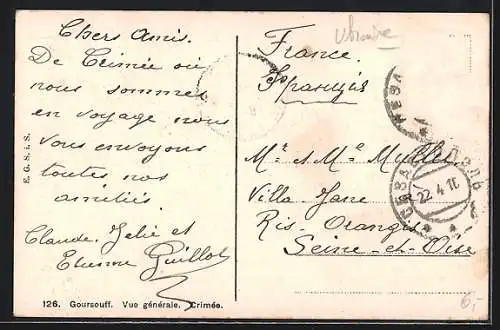 Chers Amis.
De Crimée où
nous sommes
en voyage nous
vous envoyons
toutes nos
amitiés
Claude, et
Etienne Guillot
E. G. S. i. S.
126. Goursouff. Vue générale. Crimée.
Ukraine
France.
Franquis
Mr et Me Muller
Villa Jane
Ris-Orangis
Seine-et-Oise
22 4 11
6,-